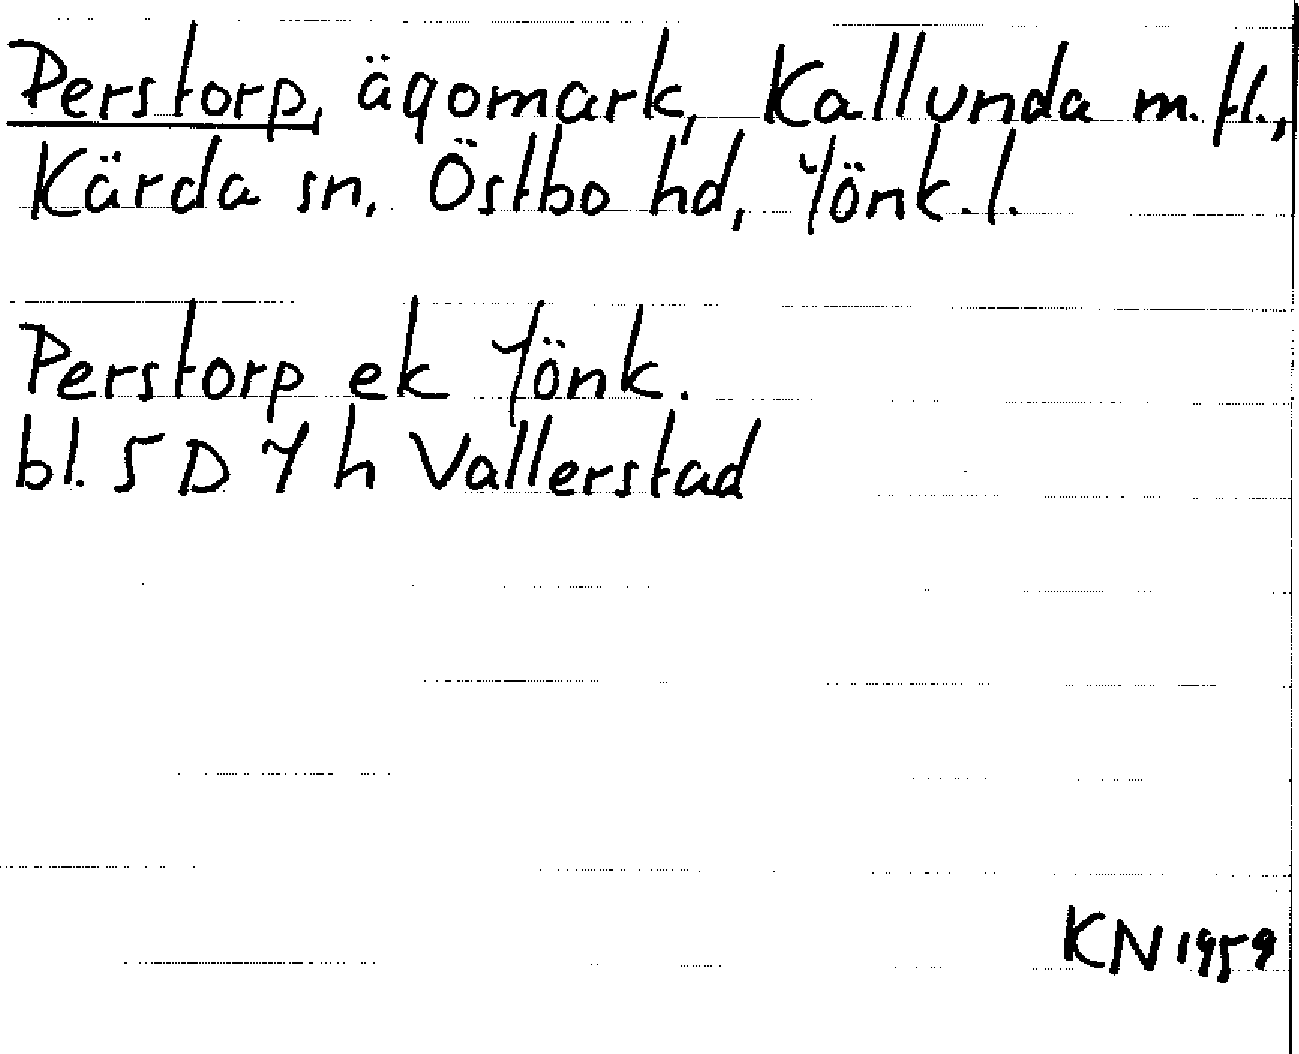 Perstorp, ägomark, Kallunda m.fl.,
Kärda sn, Östbo hd, Jönk.l.
Perstorp ek Jönk.
bl. 5 D 7 h Vallerstad
KN 1959